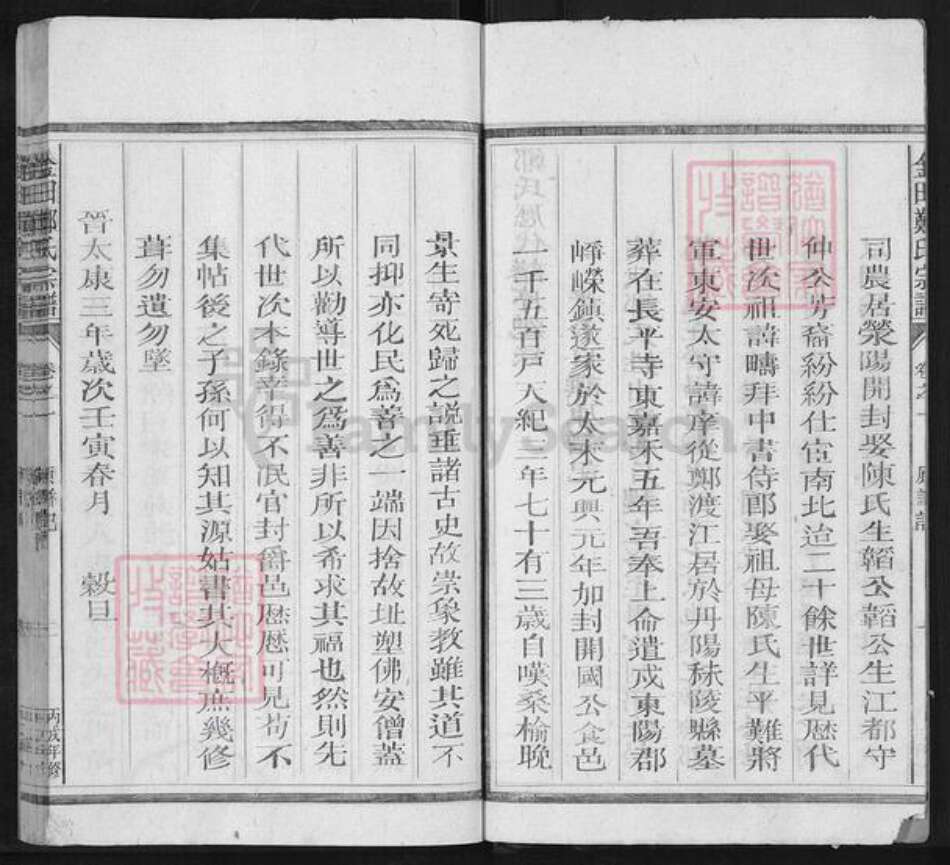 司農居滎陽開封娶陳氏生韜公韜公生江都守
仲公芳裔紛紛仕宦南北迨二十餘世詳見歷代
世次祖諱疇拜中書侍郎娶祖母陳氏生平難將
軍東安太守諱庠從鄭渡江居於丹陽秣陵縣墓
葬在長平寺東嘉禾五年吾奉上命遣戍東陽郡
崢嶸鎮遂家於太末元興元年加封開國公食邑
一千五百戶天紀三年七十有三歲自嘆桑榆晚
景生寄死歸之説垂諸古史故崇象教雖其道不
同抑亦化民爲善之一端因捨故址塑佛安僧蓋
所以勸導世之爲善非所以希求其福也然則先
代世次本錄幸得不泯官封爵邑歷歷可見苟不
集帖後之子孫何以知其源姑書其大概庶幾修
葺勿遺勿墜
晉太康三年歲次壬寅春月 穀旦
金田鄭氏宗譜 卷之一
金田鄭氏宗譜 卷之一
丙戌年修
FamilySearch